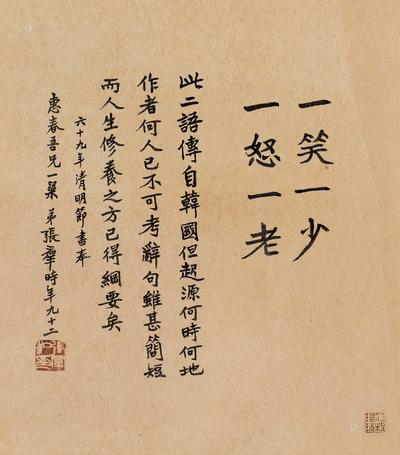 一笑一少
一怒一老
此二語傳自韓國但起源何時何地
作者何人已不可考辭句雖甚簡短
而人生修養之方已得綱要矣
六十九年清明節書奉
惠春吾兄一粲 弟張羣時年九十二